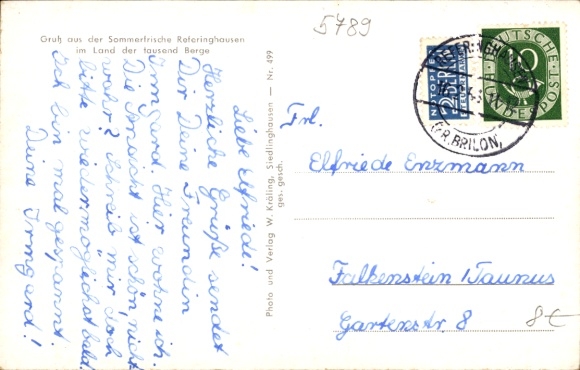 Gruß aus der Sommerfrische Referinghausen
im Land der tausend Berge
5789
Liebe Elfriede!
Herzliche Grüße sendet
Dir Deine Freundin
Irmgard. Hier wohne ich.
Die Ansicht ist schön, nicht
wahr? Schreib mir doch
bitte wiedermöglichst bald.
Ich bin mal gespannt
Deine Irmgard!
Photo und Verlag W. Kräling, Siedlinghausen — Nr. 499
ges. gesch.
NOTOPFER
2 BERLIN
STEUERMARKE
DEUTSCHE POST
10
(KR. BRILON)
Frl.
Elfriede Enzmann
Falkenstein/Taunus
Gartenstr. 8
8€